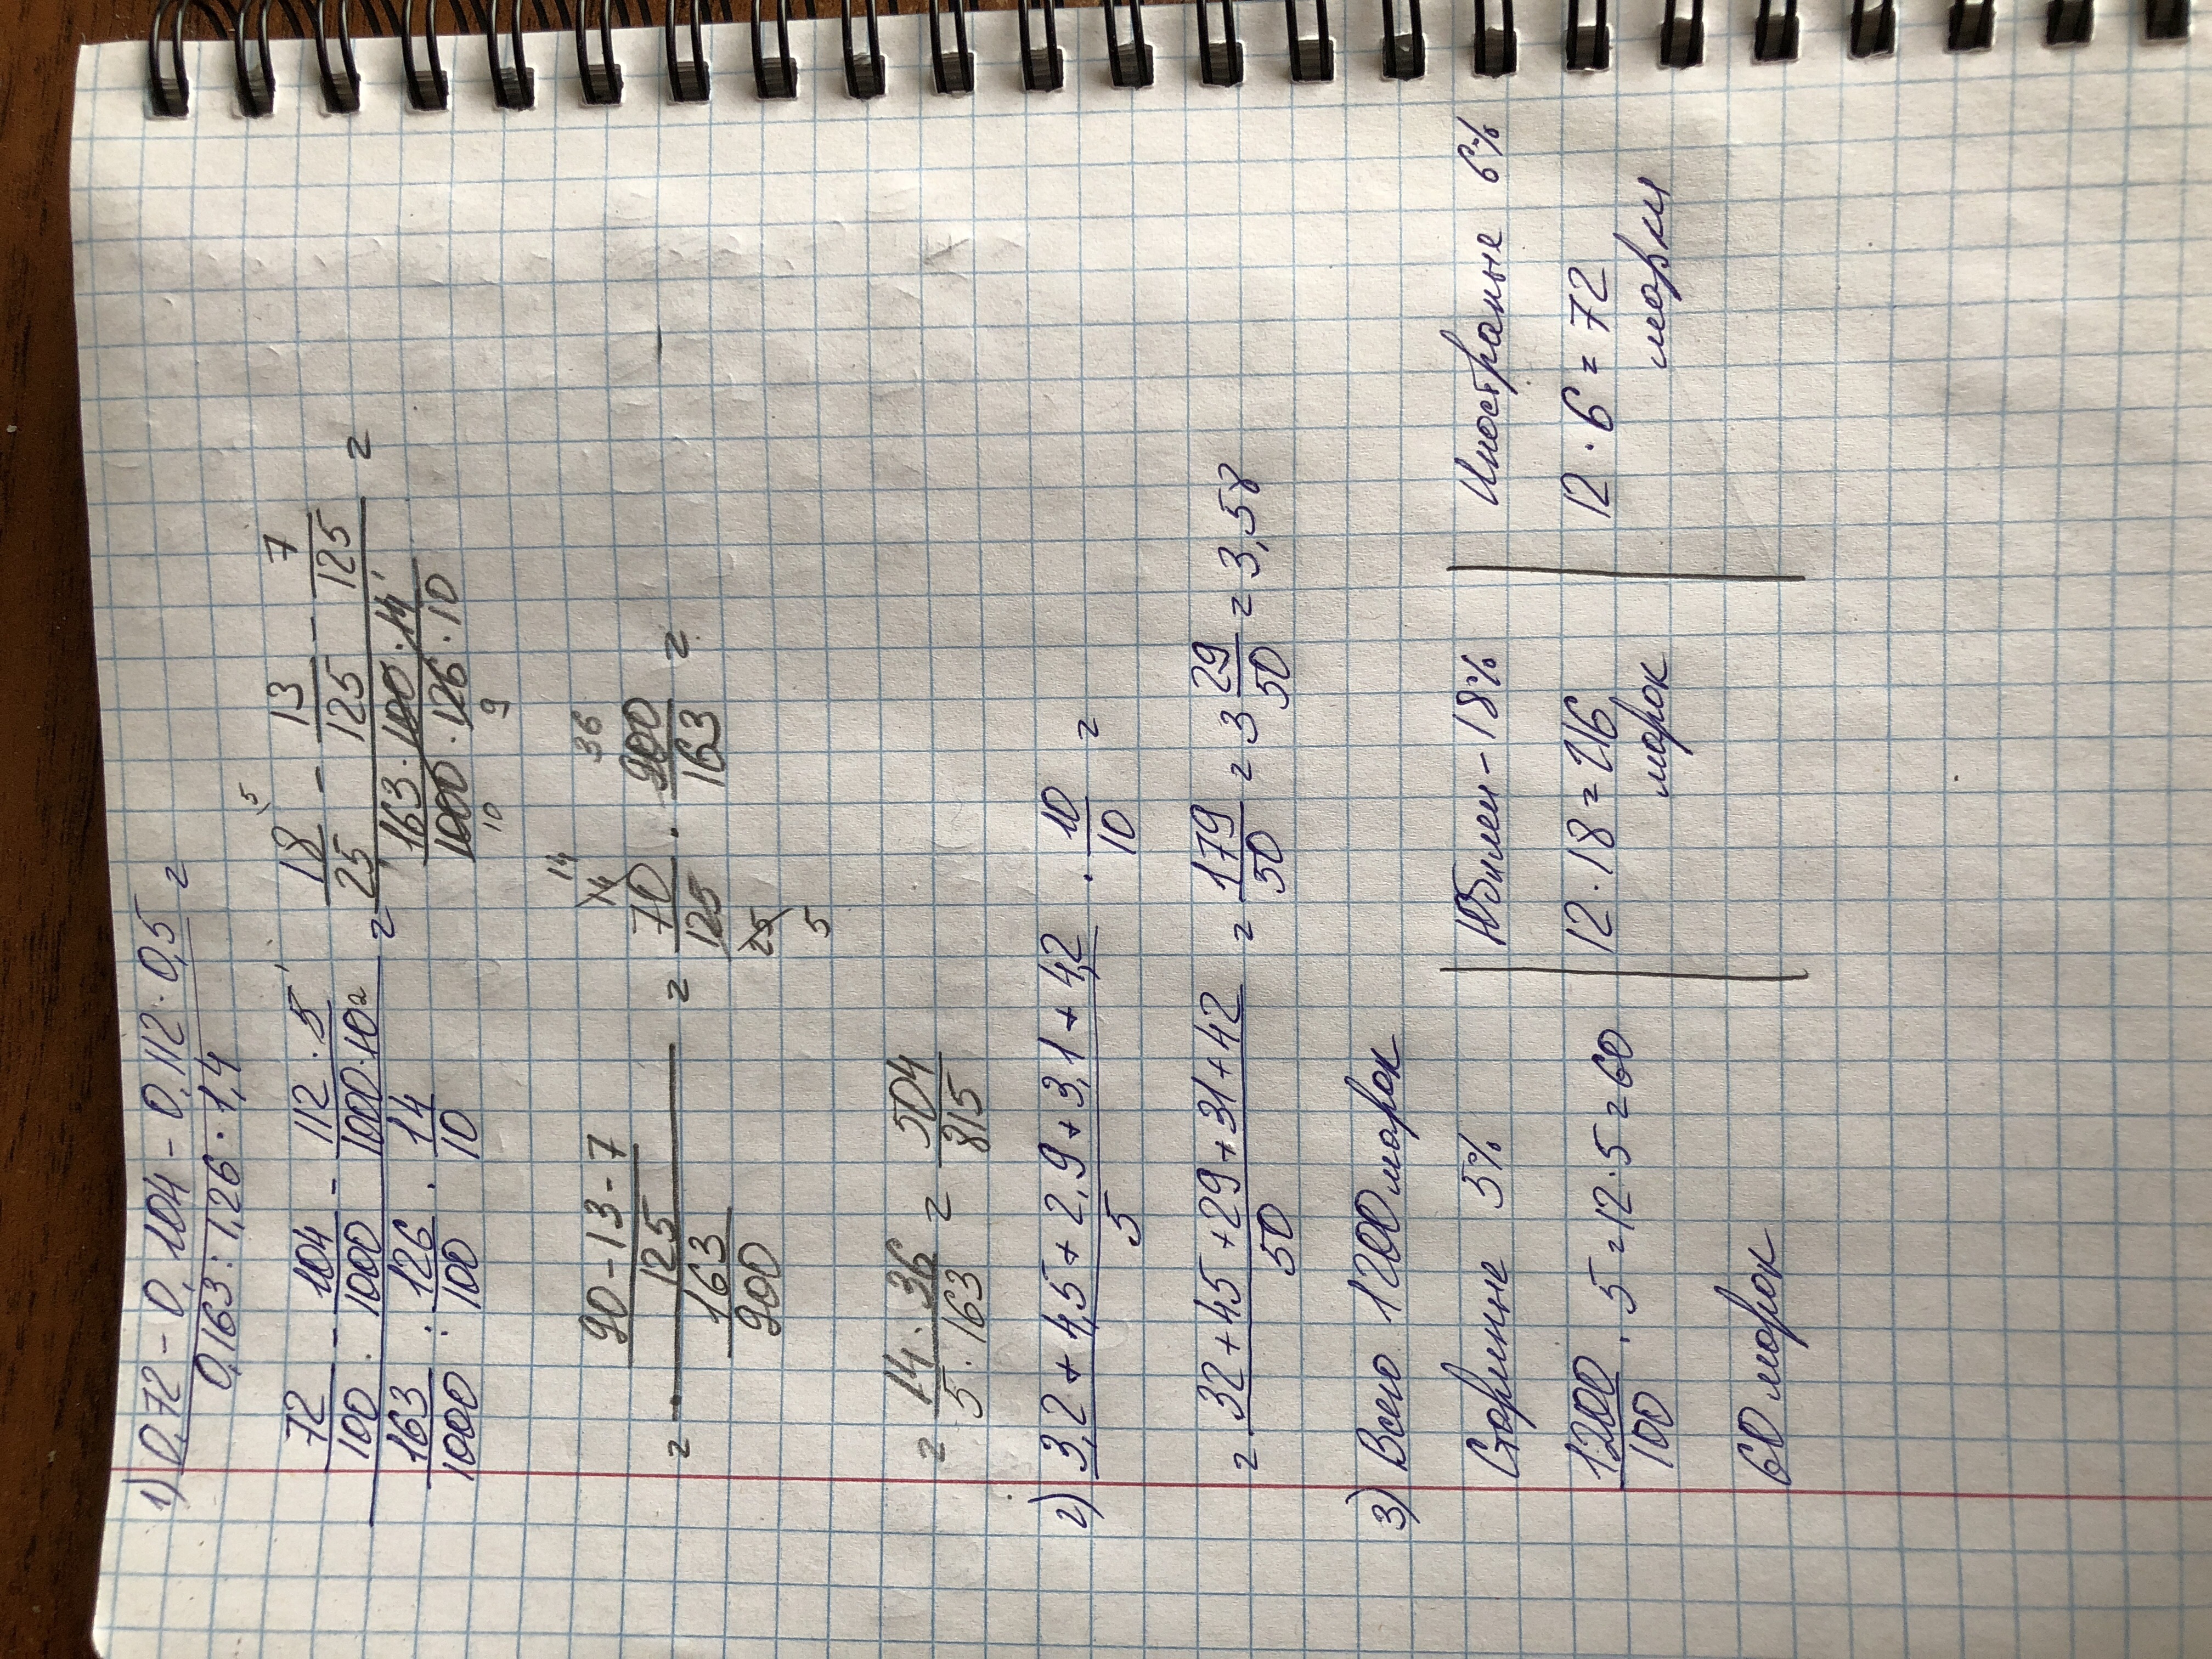 1) 0,72 - 0,104 - 0,112 · 0,5 =
0,163 : 1,26 · 1,4
72/100 - 104/1000 - 112 · 5/1000 · 10 = 18/25 - 13/125 - 7/125 =
163/1000 : 126/100 · 14/10 = 163 · 100 · 14/1000 · 126 · 10
= 90 - 13 - 7/125 = 70/125 · 900/163 =
163/900
= 14 · 36/5 · 163 = 504/815
2) 3,2 + 4,5 + 2,9 + 3,1 + 4,2/5 · 10/10 =
= 32 + 45 + 29 + 31 + 42/50 = 179/50 = 3 29/50 = 3,58
3) Всего 1200 марок
Старинные 5% Юбилеи - 18% Иностраные 6%
1200/100 · 5 = 12 · 5 = 60 12 · 18 = 216 12 · 6 = 72
марок марки
60 марок